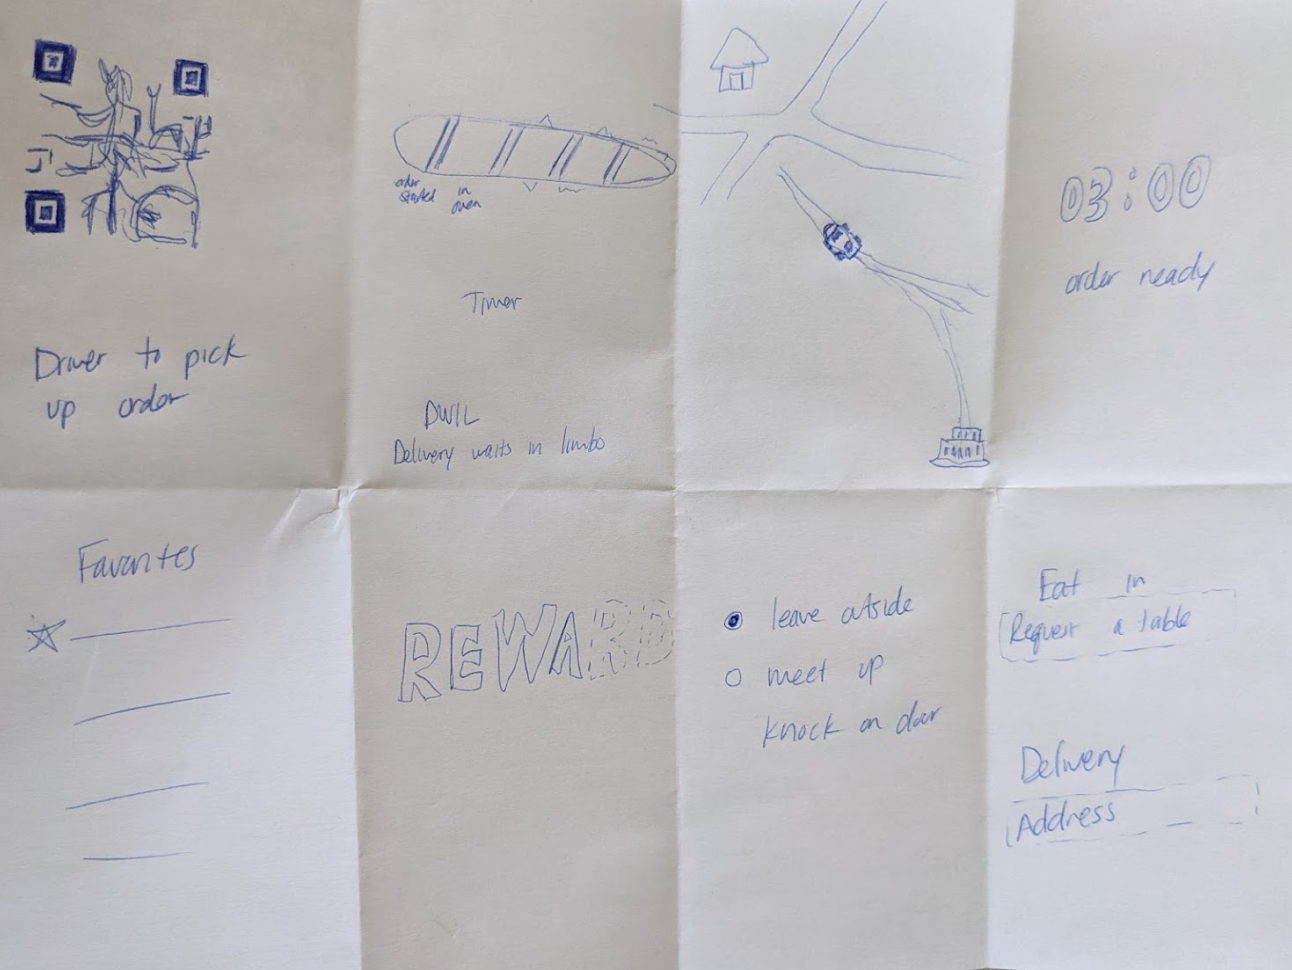 Driver to pick
up order
order
started
in
oven
Timer
DWIL
Delivery waits in limbo
03:00
order ready
Favorites
REWARD
leave outside
meet up
knock on door
Eat in
Request a table
Delivery
Address